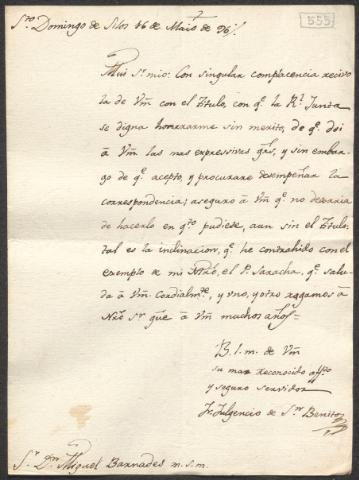 555
Sto. Domingo de Silos 16 de Maio de 96.
Mui Sr. mio: Con singular complacencia recivo
la de Vm con el Titulo, con qe. la Rl. Junta
se digna honrrarme sin merito, de qe. doi
â Vm las mas expressivas grs, y sin embar
go de qe. acepto, y procurare desempeñar la
correspondencia; aseguro â Vm qe. no dexaria
de hacerlo en qto. pudiese, aun sin el Titulo:
tal es la inclinacion, qe. he contrahido con el
exemplo de mi Mtrô, el P. Saracha, qe. salu-
da â Vm. Cordialmte, y uno, y otro rogamos â
Nrô Sr gûe â Vm muchos años
B. l. m. de Vm
su mas reconocido affto
y seguro servidor
Fr. Fulgencio de Sn. Benito
Sr. Dn. Miguel Barnades m. s. m.